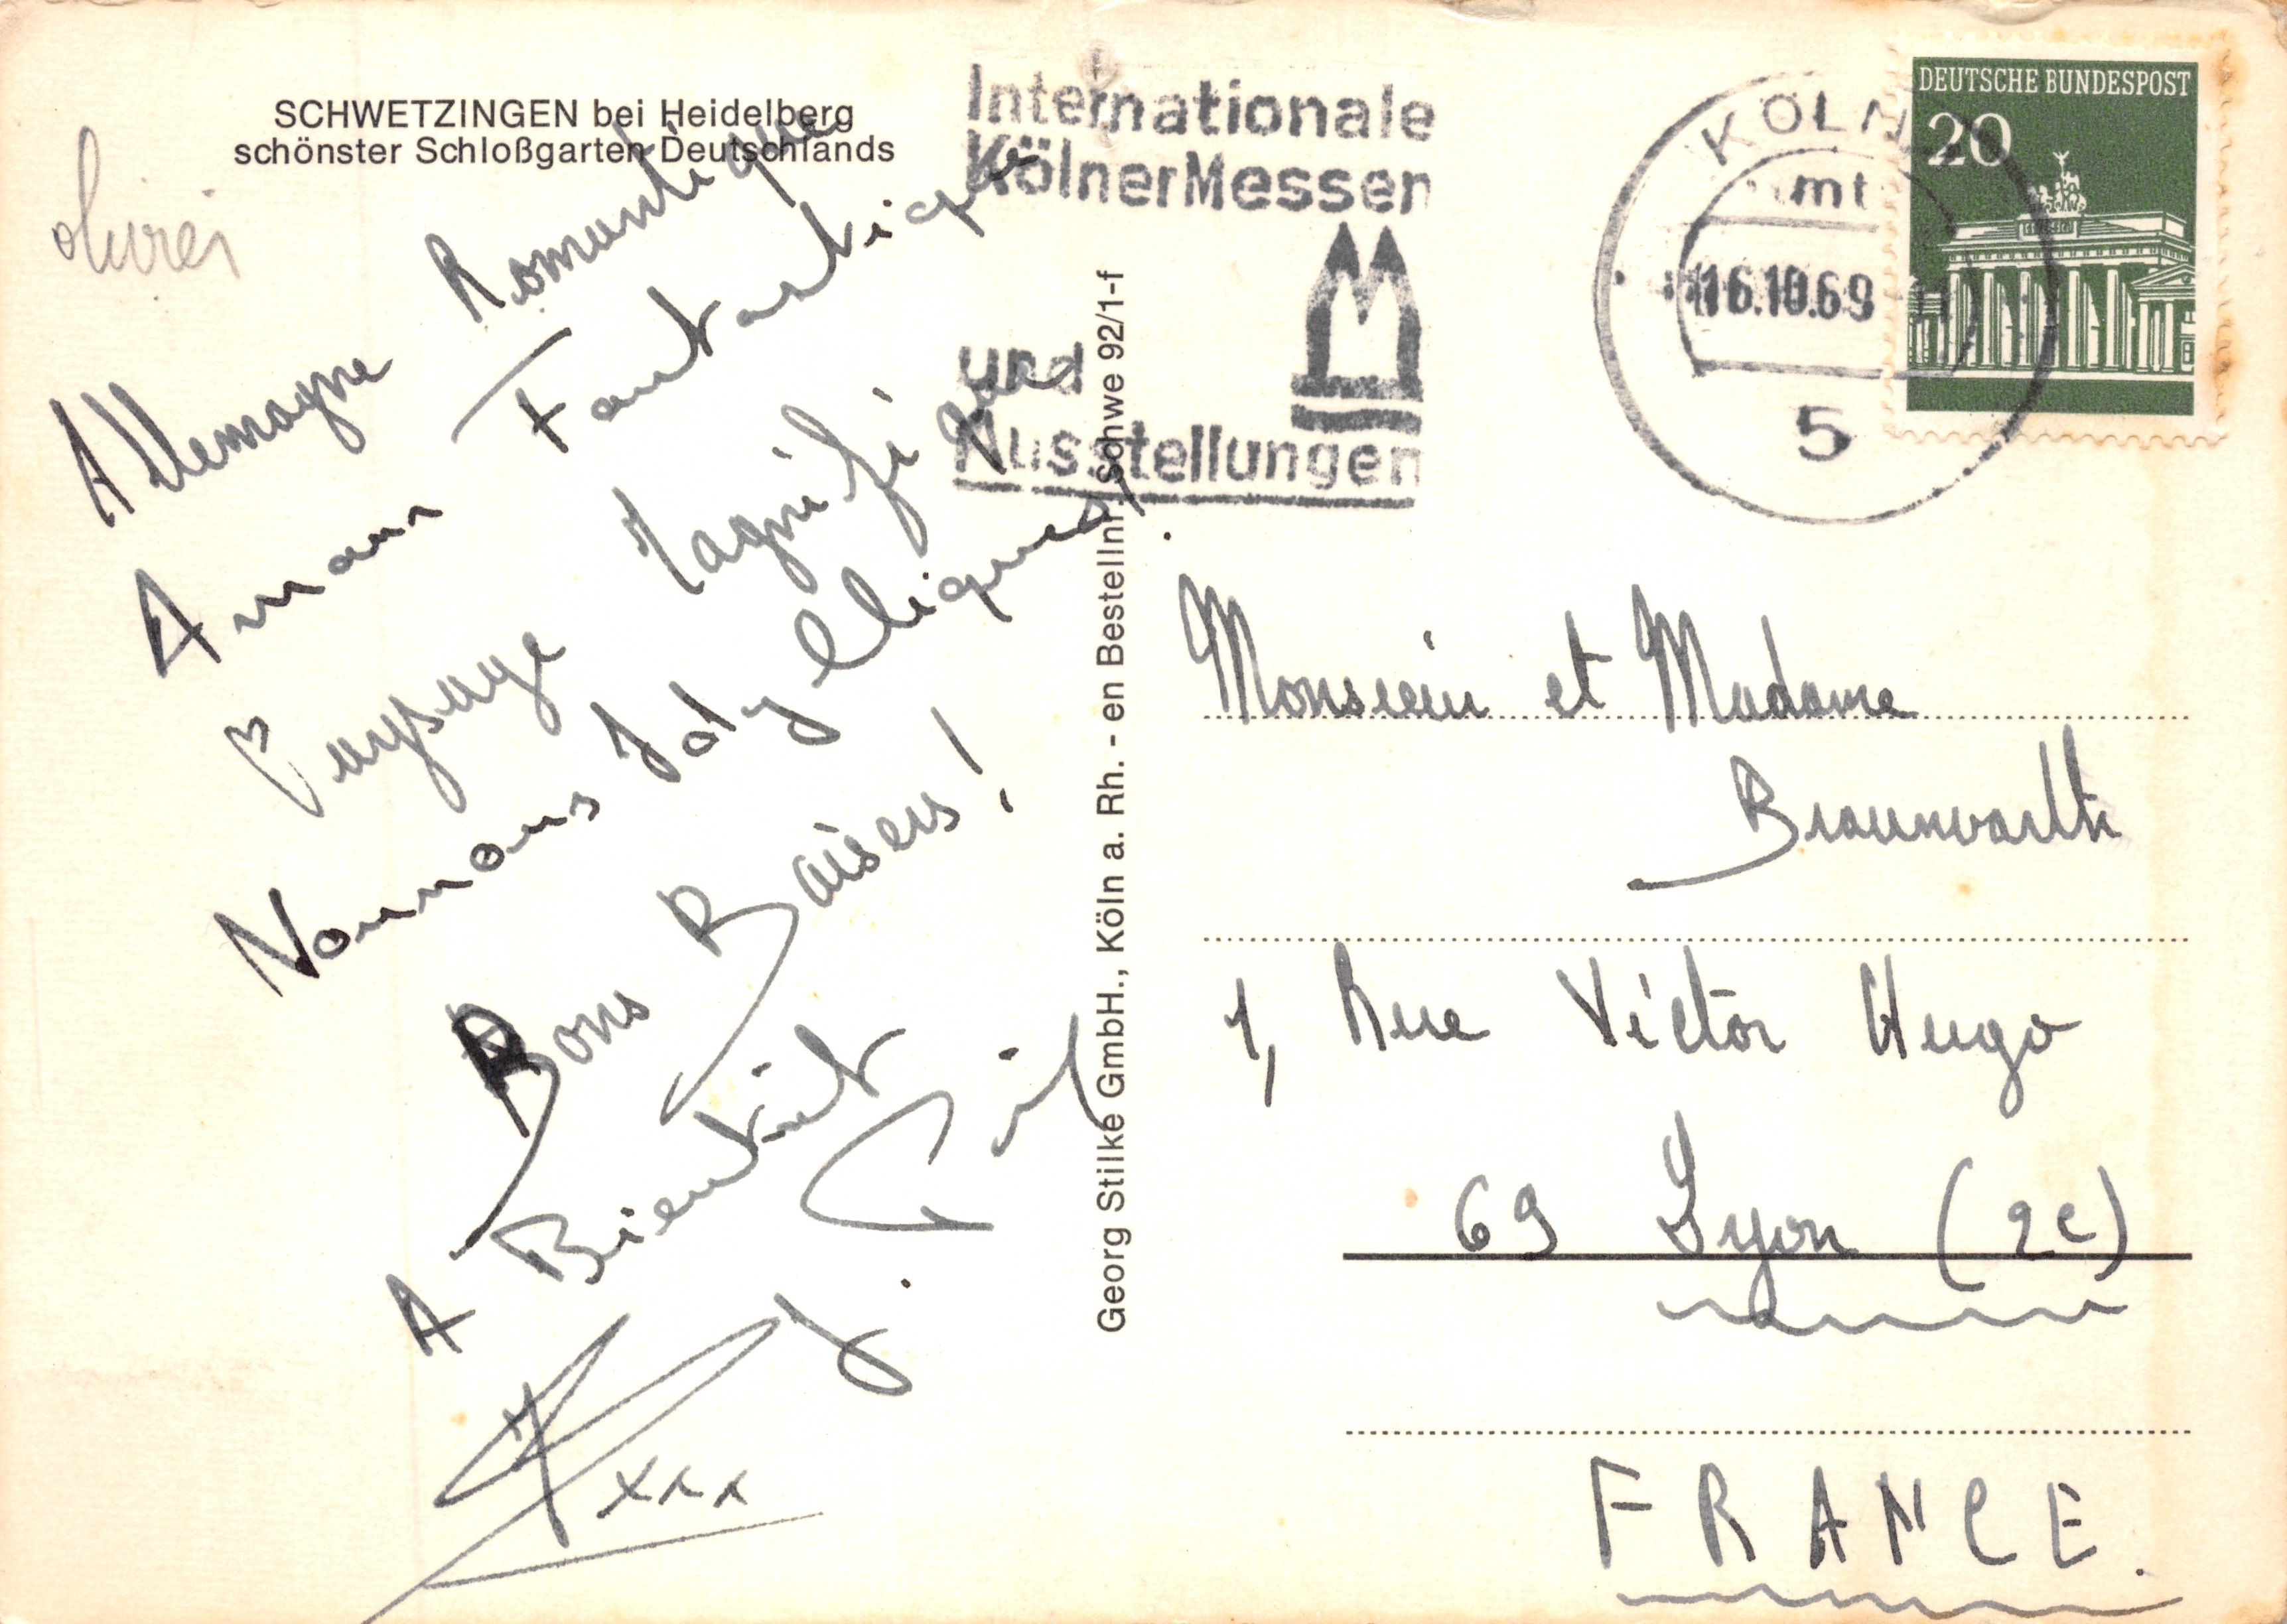 SCHWETZINGEN bei Heidelberg
schönster Schloßgarten Deutschlands
Allemagne Romantique
Amour Fantastique
Paysage Magnifique
Nounours Idylliques
Bons Baisers !
A Bientôt
xxx
Georg Stilke GmbH., Köln a. Rh. - en Bestellnr. Schwe 92/1-f
Internationale
KölnerMessen
und
Ausstellungen
KÖLN
16.10.69
5
DEUTSCHE BUNDESPOST
20
Monsieur et Madame
Braunwarth
1, Rue Victor Hugo
69 Lyon (2e)
FRANCE.